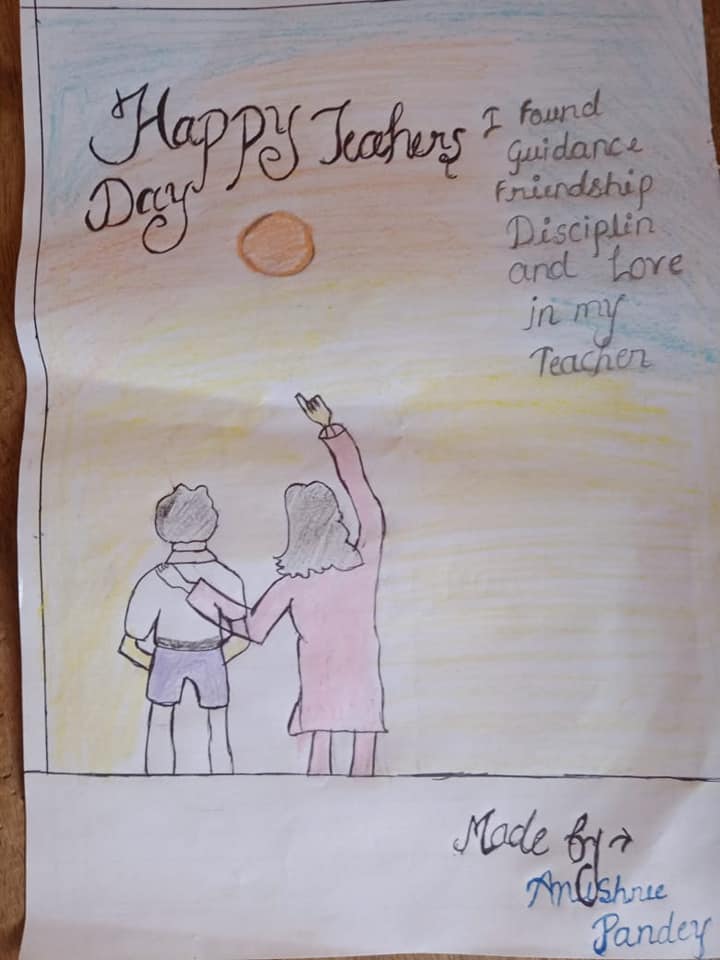 Happy Teahers
Day
I Found
Guidance
Friendship
Disciplin
and Love
in my
Teacher
Made by →
Anushree
Pandey